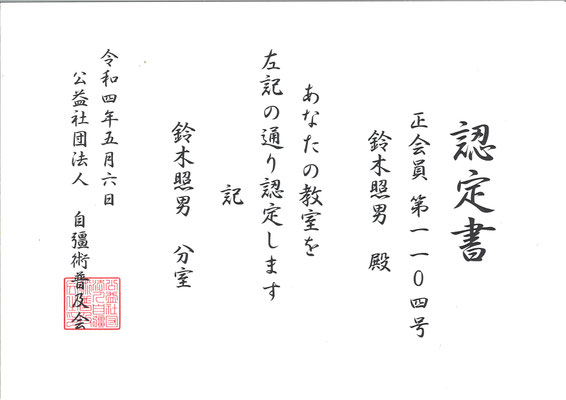 認定書
正会員 第一一〇四号
鈴木照男 殿
あなたの教室を
左記の通り認定します
記
鈴木照男 分室
令和四年五月六日
公益社団法人 自彊術普及会